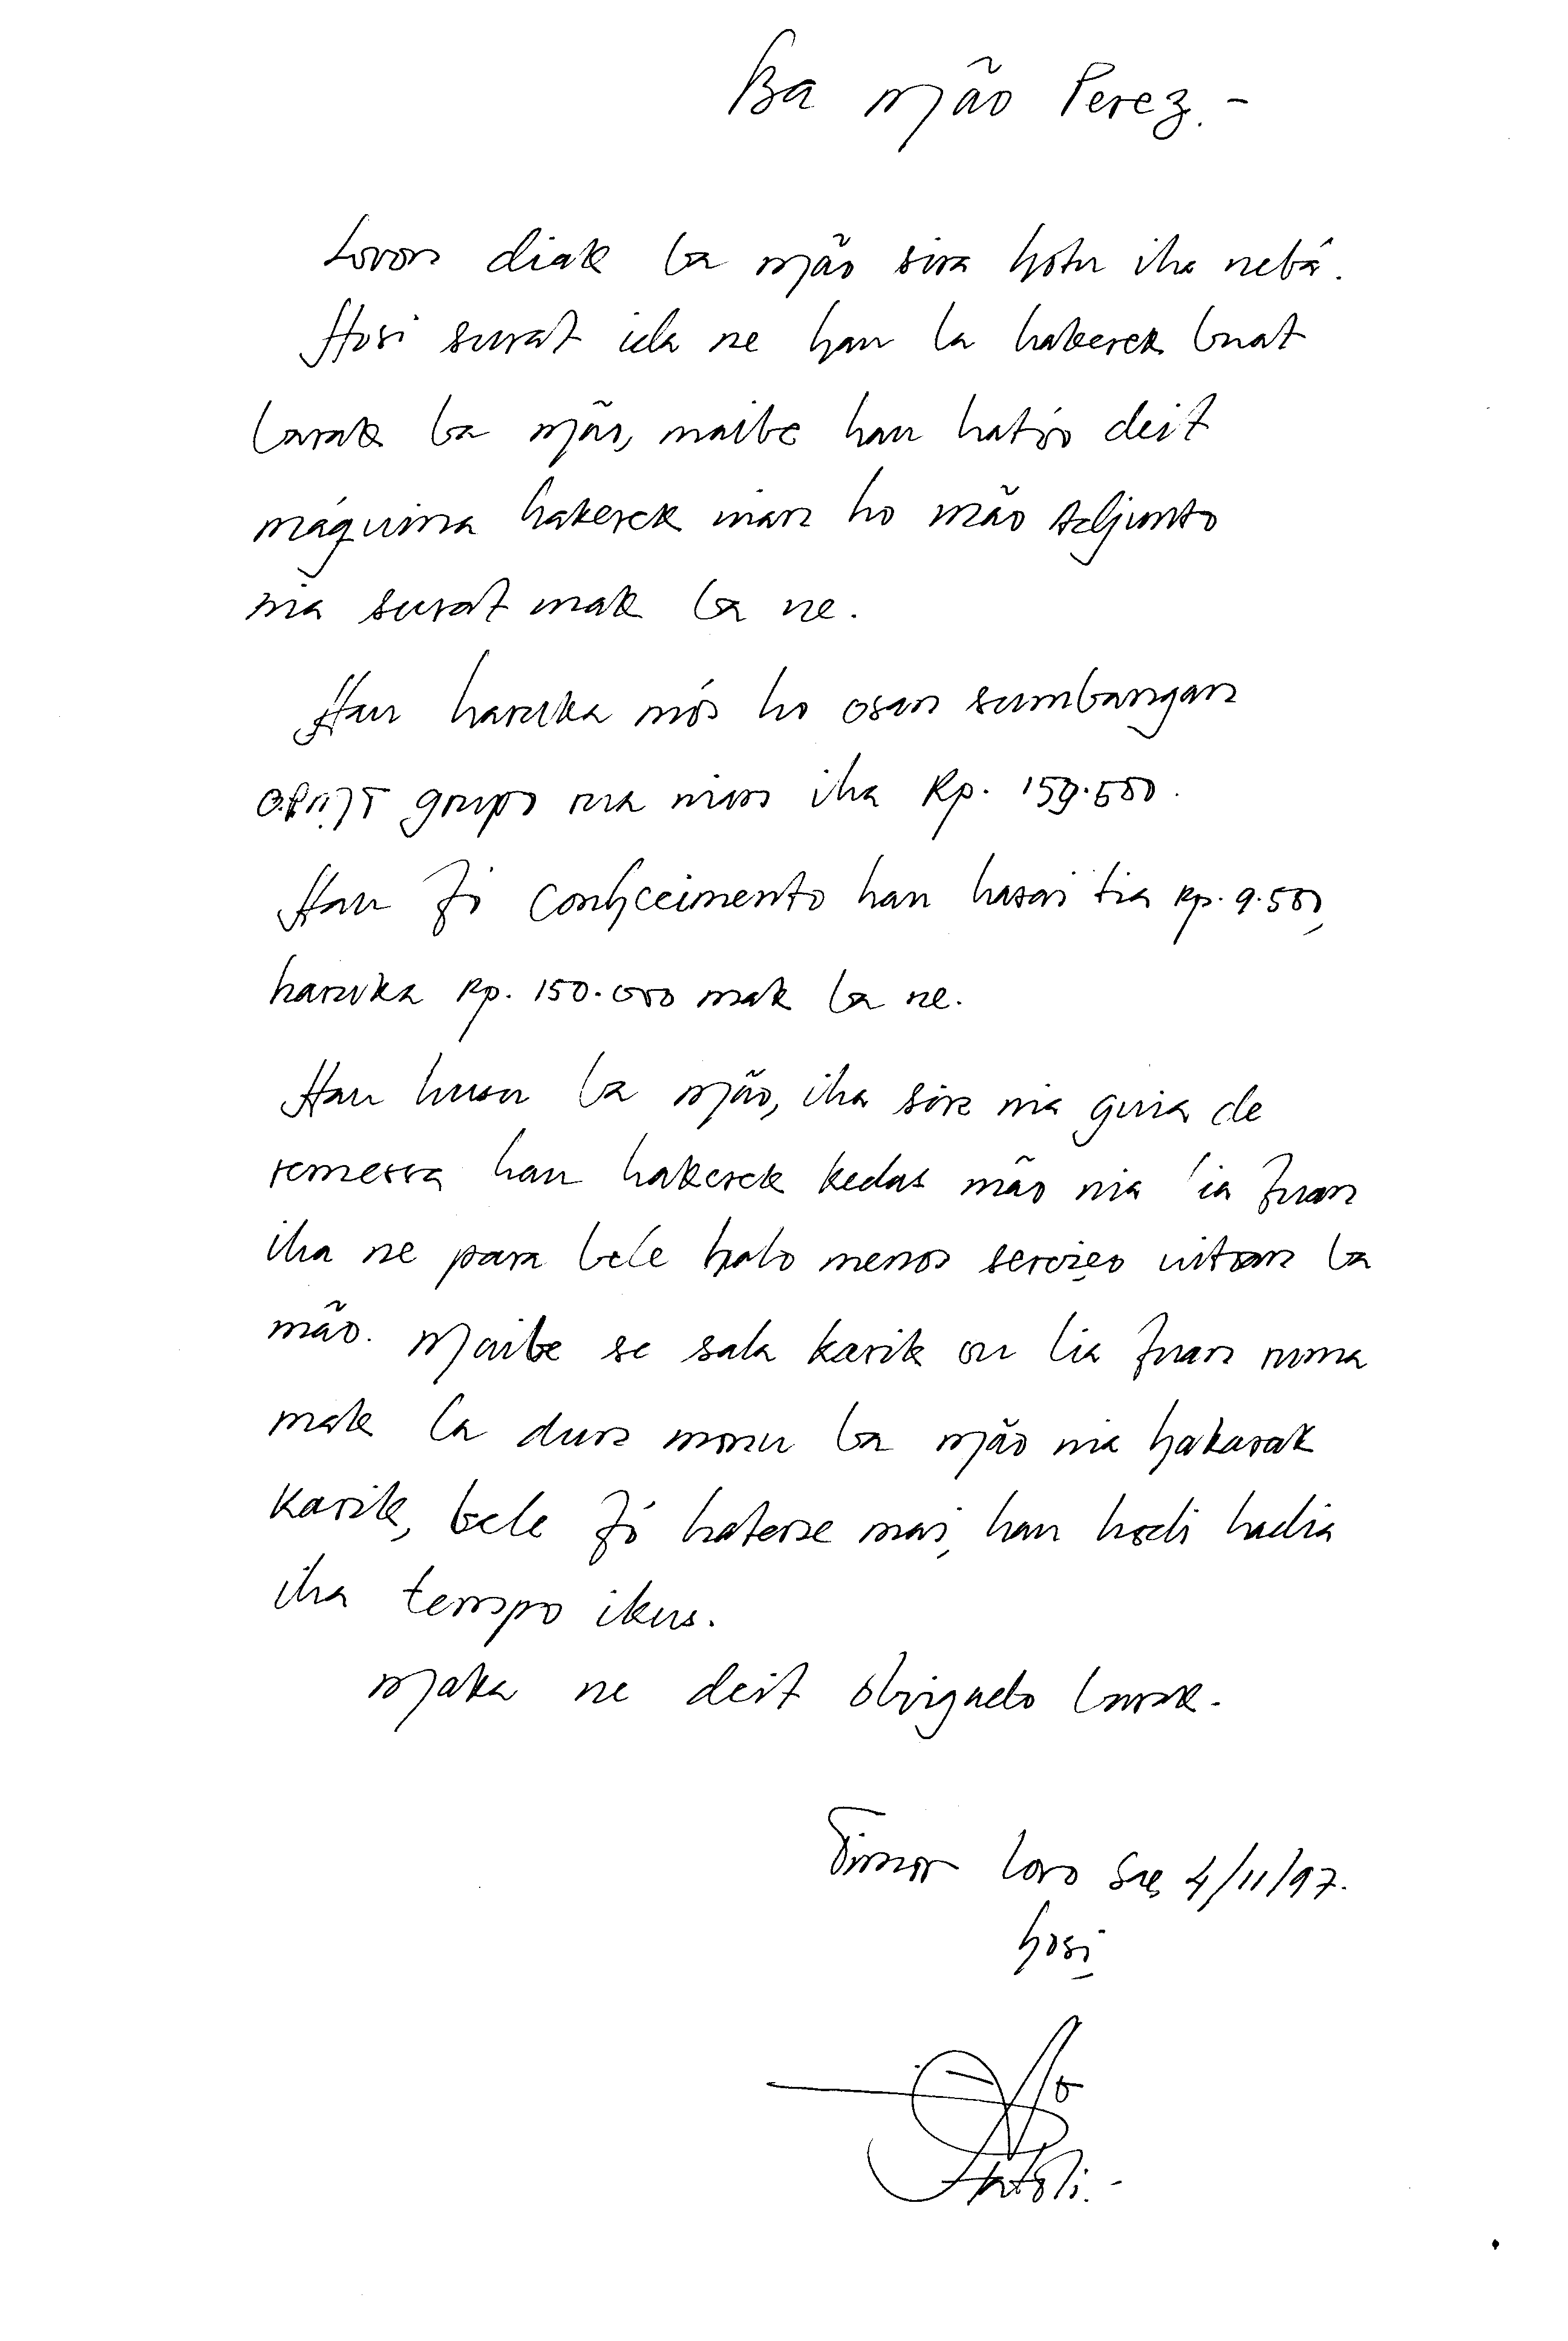 Ba Mão Perez.-
Loron diak ba Mão sira hotu iha nebá.
Hosi surat ida ne hau la hakerek buat
barak ba Mão, maibe hau ható deit
máquina hakerek nian ho mão Adjunto
nia surat mak ba ne.
Hau haruka mós ho osan sumbangan
O.P.M.T grupo rua nian iha Rp. 159.500.
Hau fó conhecimento hau hasai tia Rp. 9.500,
haruka Rp. 150.000 mak ba ne.
Hau husu ba Mão, iha sira nia guia de
remessa hau hakerek kedas mão nia lia fuan
iha ne para bele halo menos serviço uitoan ba
mão. Maibe se sala karik ou lia fuan ruma
mak la dun monu ba Mão nia hakarak
karik, bele fó hatene mai, hau hodi hadia
iha tempo ikus.
Maka ne deit obrigado barak.
Timor Loro Sae, 4/11/97.
hosi